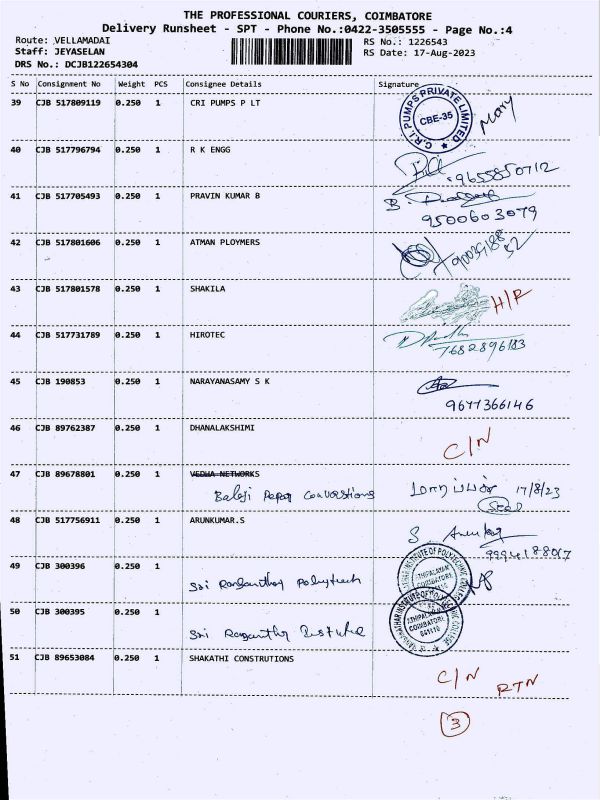 THE PROFESSIONAL COURIERS, COIMBATORE
Delivery Runsheet - SPT - Phone No.:0422-3505555 - Page No.:4
Route: VELLAMADAI
RS No.: 1226543
Staff: JEYASELAN
RS Date: 17-Aug-2023
DRS No.: DCJB122654304
S No Consignment No Weight PCS Consignee Details Signature
39 CJB 517809119 0.250 1 CRI PUMPS P LT
C.R.I. PUMPS PRIVATE LIMITED
CBE-35
Mary
40 CJB 517796794 0.250 1 R K ENGG
9655850712
41 CJB 517705493 0.250 1 PRAVIN KUMAR B
B
9500603079
42 CJB 517801606 0.250 1 ATMAN PLOYMERS
43 CJB 517801578 0.250 1 SHAKILA
H/R
44 CJB 517731789 0.250 1 HIROTEC
7682896183
45 CJB 190853 0.250 1 NARAYANASAMY S K
9677366146
46 CJB 89762387 0.250 1 DHANALAKSHIMI
C/N
47 CJB 89678801 0.250 1 VEDHA NETWORKS
Balaji Paper Conversions
17/8/23
48 CJB 517756911 0.250 1 ARUNKUMAR.S
S
49 CJB 300396 0.250 1
Sri Ranganthar Polytech
50 CJB 300395 0.250 1
Sri Ranganthr Institute
51 CJB 89653084 0.250 1 SHAKATHI CONSTRUTIONS
C/N RTN
3